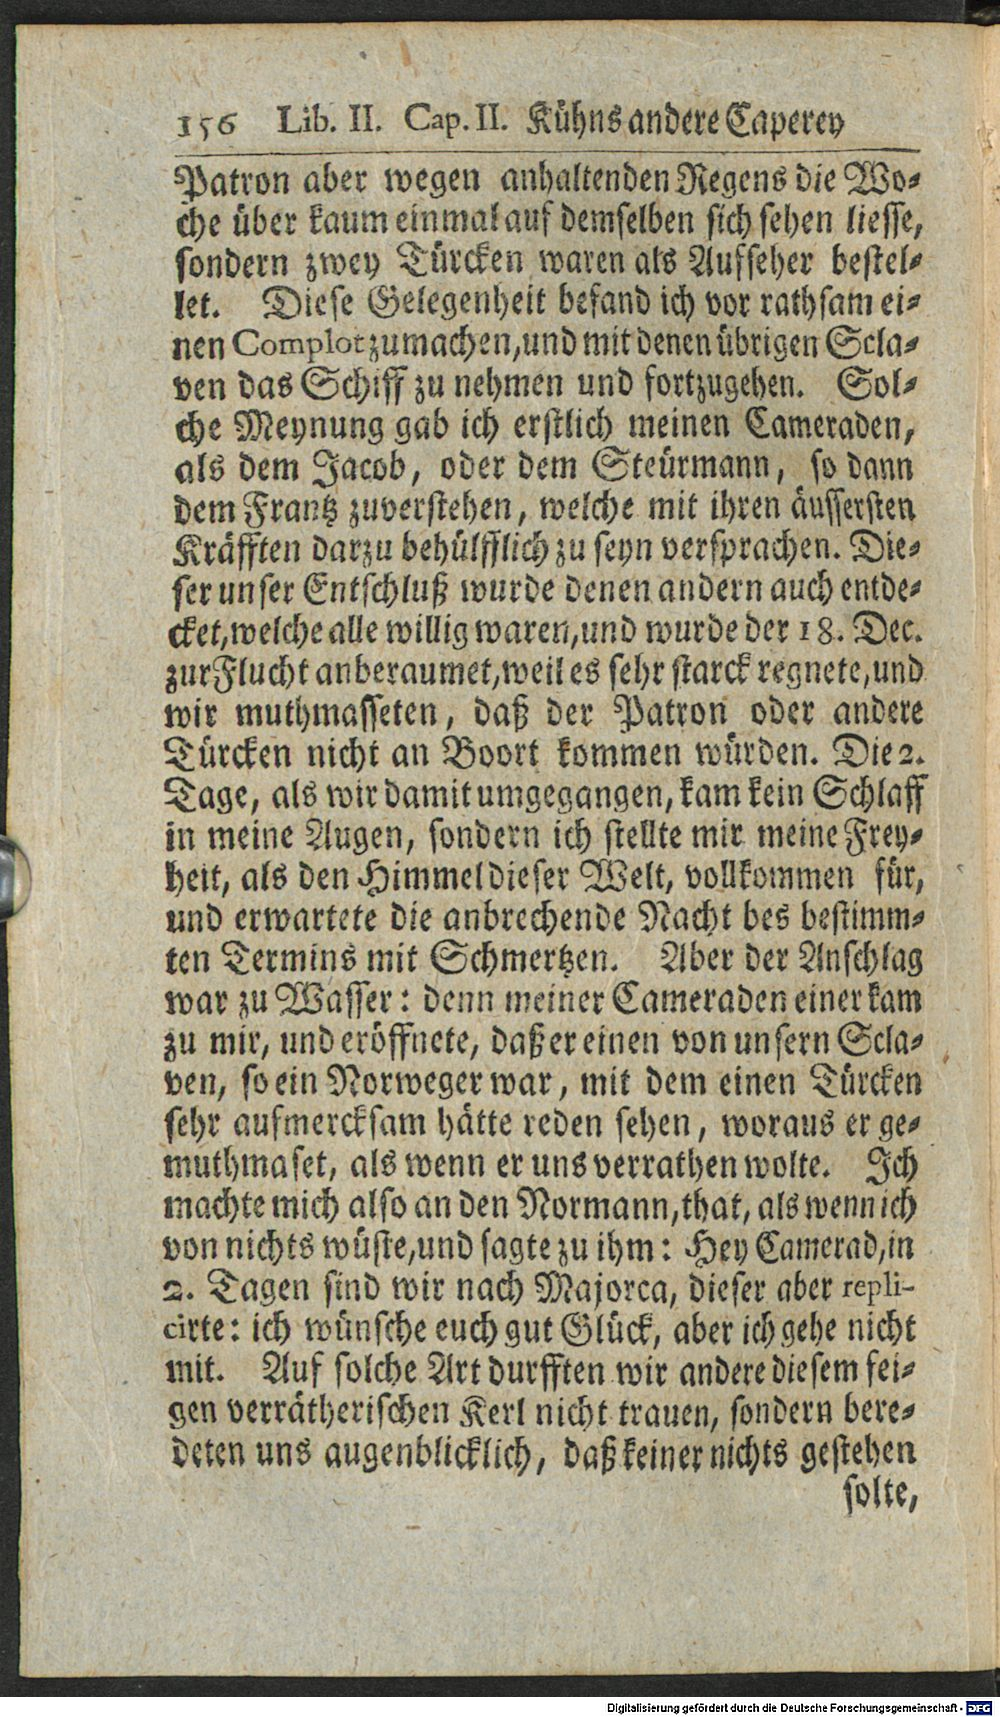 156 Lib. II. Cap. II. Kühns andere Caperey
Patron aber wegen anhaltenden Regens die Wo-
che über kaum einmal auf demselben sich sehen liesse,
sondern zwey Türcken waren als Aufseher bestel-
let. Diese Gelegenheit befand ich vor rathsam ei-
nen Complot zumachen, und mit denen übrigen Scla-
ven das Schiff zu nehmen und fortzugehen. Sol-
che Meynung gab ich erstlich meinen Cameraden,
als dem Jacob, oder dem Steürmann, so dann
dem Frantz zuverstehen, welche mit ihren äussersten
Kräfften darzu behülfflich zu seyn versprachen. Die-
ser unser Entschluß wurde denen andern auch entde-
cket, welche alle willig waren, und wurde der 18. Dec.
zur Flucht anberaumet, weil es sehr starck regnete, und
wir muthmasseten, daß der Patron oder andere
Türcken nicht an Boort kommen würden. Die 2.
Tage, als wir damit umgegangen, kam kein Schlaff
in meine Augen, sondern ich stellte mir meine Frey-
heit, als den Himmel dieser Welt, vollkommen für,
und erwartete die anbrechende Nacht bes bestimm-
ten Termins mit Schmertzen. Aber der Anschlag
war zu Wasser: denn meiner Cameraden einer kam
zu mir, und eröffnete, daß er einen von unsern Scla-
ven, so ein Norweger war, mit dem einen Türcken
sehr aufmercksam hätte reden sehen, woraus er ge-
muthmaset, als wenn er uns verrathen wolte. Ich
machte mich also an den Normann, that, als wenn ich
von nichts wüste, und sagte zu ihm: Hey Camerad, in
2. Tagen sind wir nach Majorca, dieser aber repli-
cirte: ich wünsche euch gut Glück, aber ich gehe nicht
mit. Auf solche Art durfften wir andere diesem fei-
gen verrätherischen Kerl nicht trauen, sondern bere-
deten uns augenblicklich, daß keiner nichts gestehen
solte,
Digitalisierung gefördert durch die Deutsche Forschungsgemeinschaft - DFG